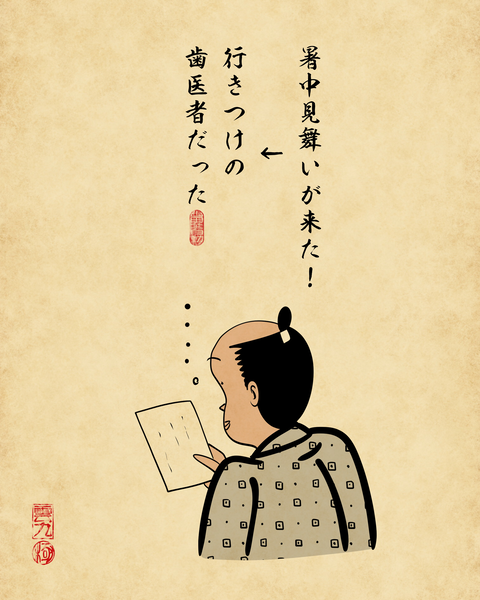 暑中見舞いが来た！
←
行きつけの
歯医者だった